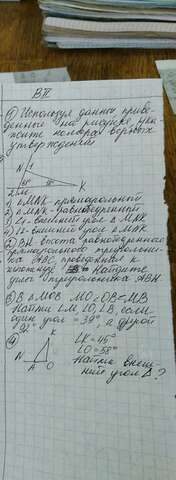 ВII
① Используя данные приве-
денные на рисунке, ука-
жите номера верных
утверждений
N
1
45°
K
M
1) △MNK прямоугольный
2) △MNK - равнобедренный
3) ∠1 - внешний угол △MNK
4) ∠2 - внешний угол △MNK
② BH - высота равнобедренного
прямоугольного треугольни-
ка ABC, проведённая к
гипотенузе. Найдите
углы треугольника ABH
③ В △MOB MO < OB < MB
Найти ∠M, ∠O, ∠B, если
один угол = 39°, а другой
= 91°
④
K
∠K = 45°
∠O = 58°
N
A
O
Найти внеш-
ний угол A?